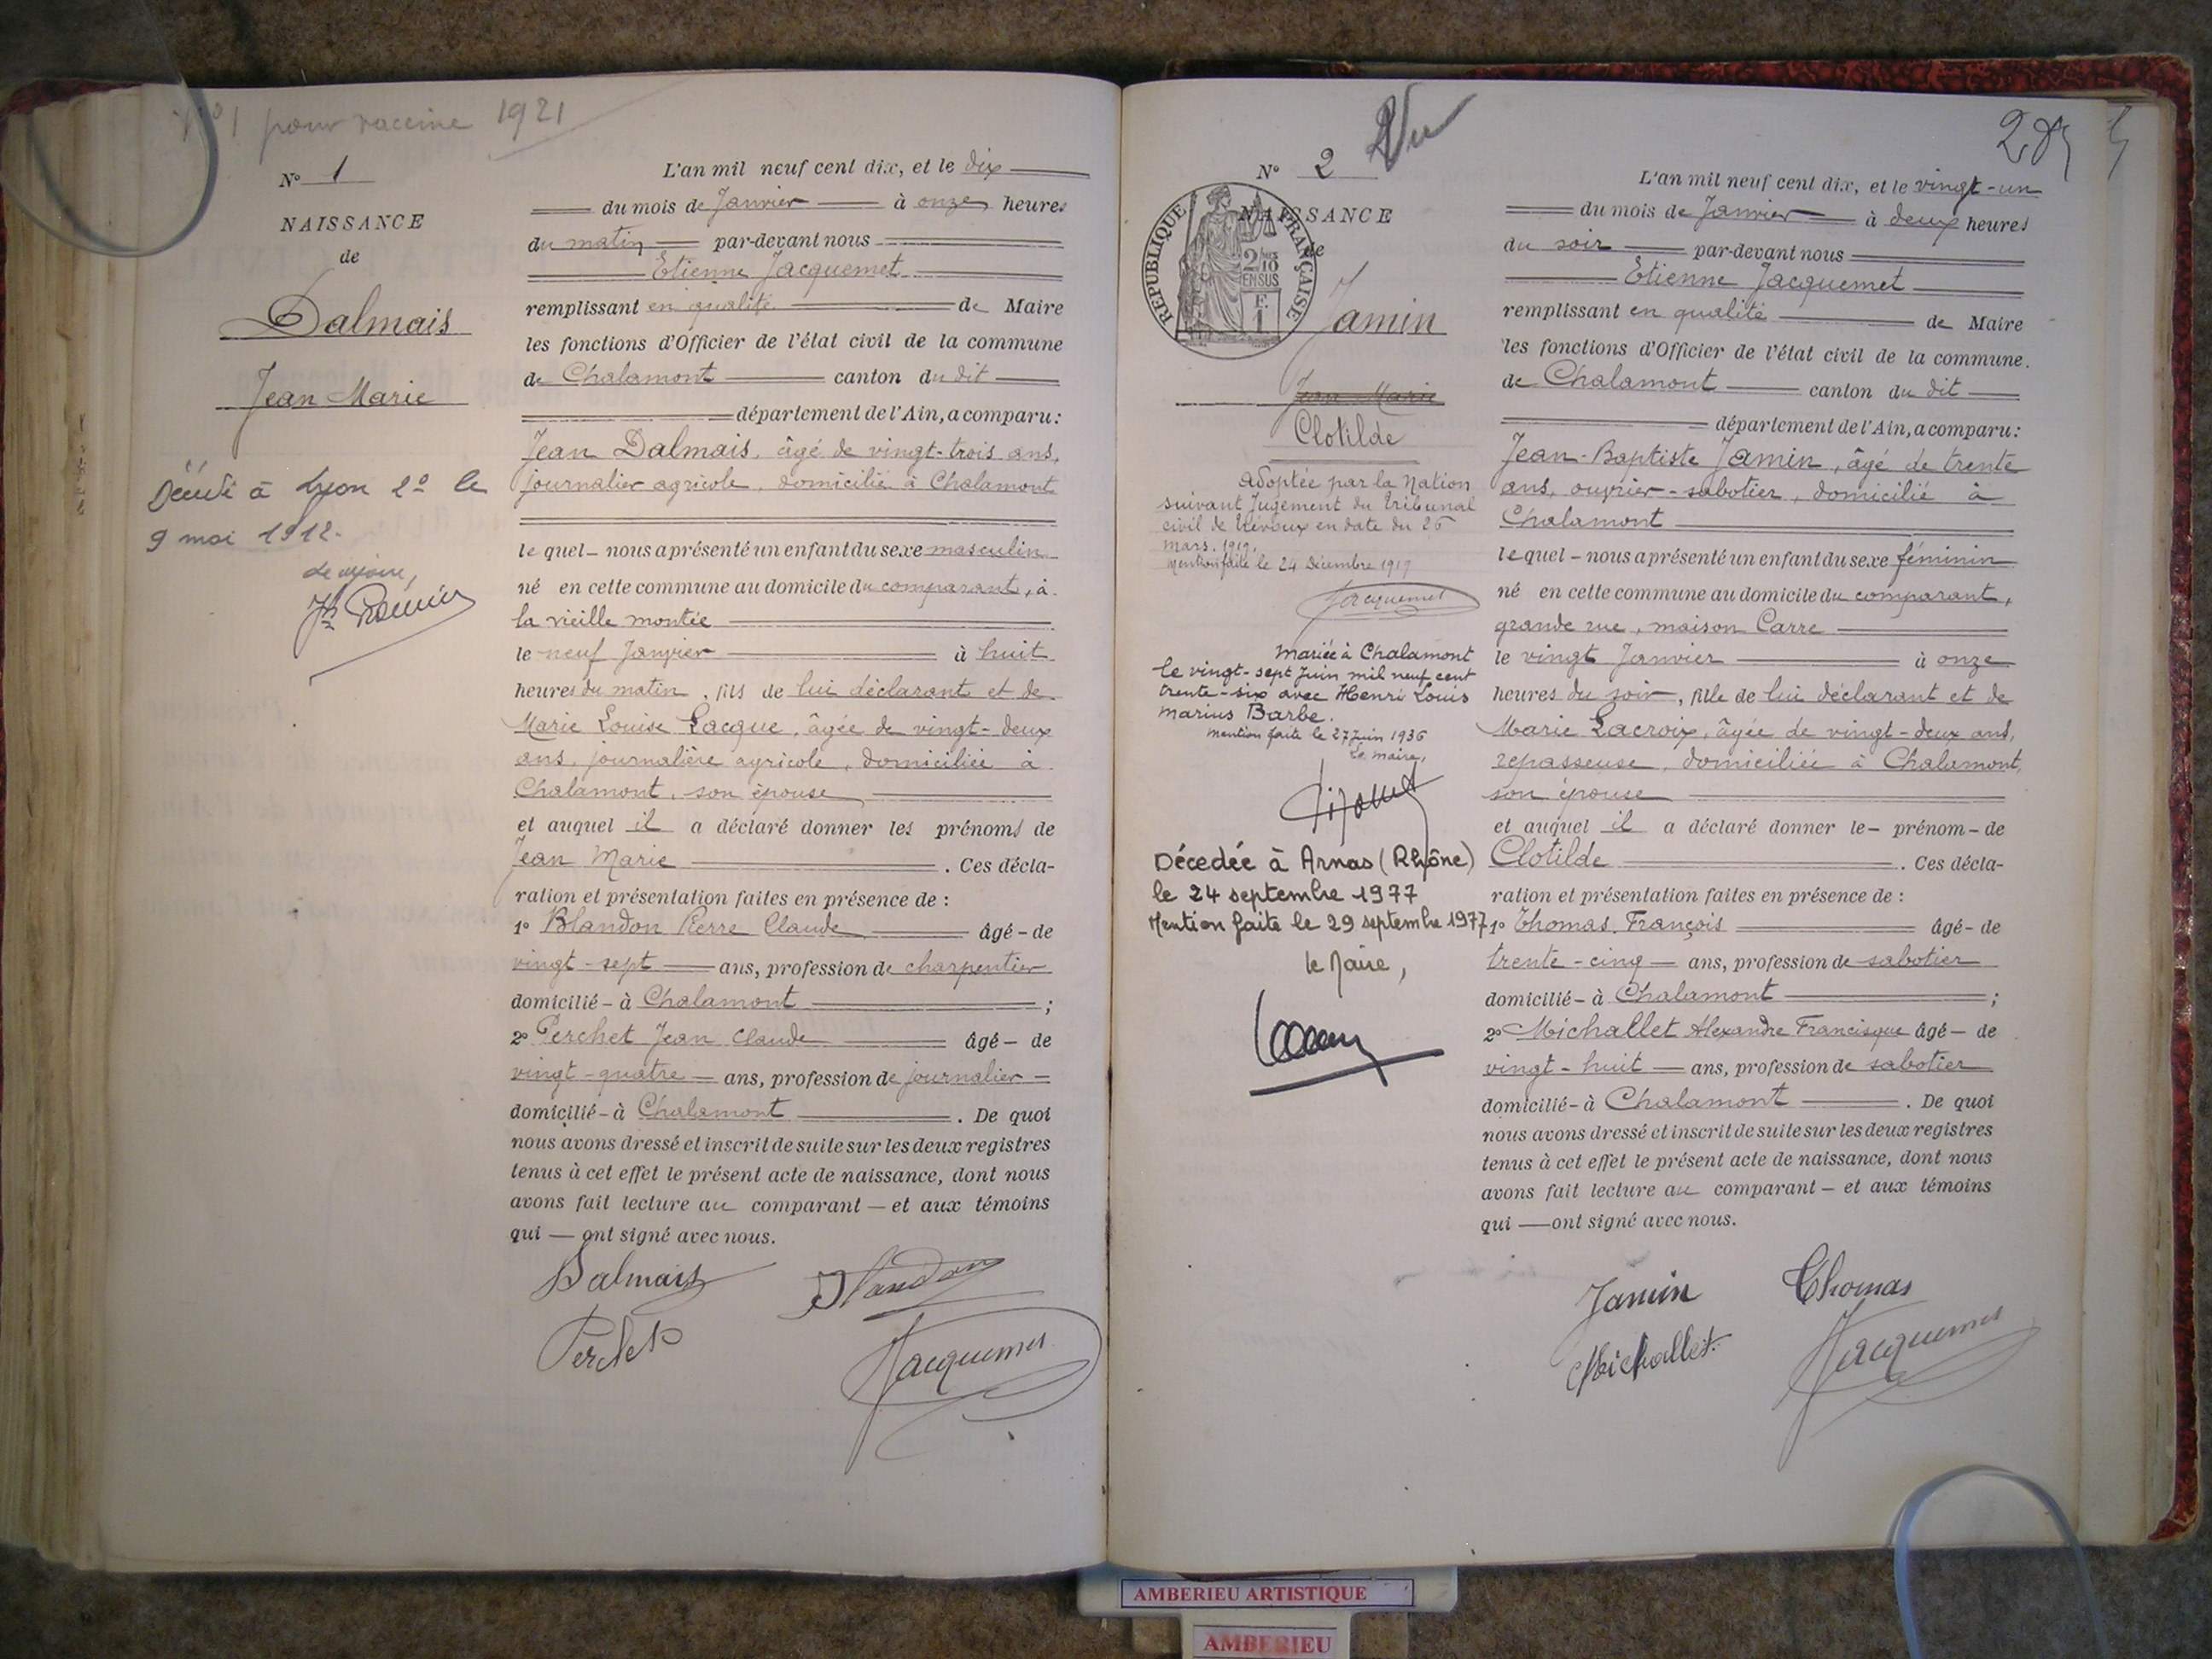 N° 1 pour vaccine 1921
N° 1
NAISSANCE
de
Dalmais
Jean Marie
Décédé à Lyon 2e le
9 mai 1912.
L'an mil neuf cent dix, et le dix
du mois de Janvier à onze heures
du matin par-devant nous
Etienne Jacquemet
remplissant en qualité de Maire
les fonctions d'Officier de l'état civil de la commune
de Chalamont canton du dit
département de l'Ain, a comparu:
Jean Dalmais, âgé de vingt-trois ans,
journalier agricole, domicilié à Chalamont
le quel - nous a présenté un enfant du sexe masculin
né en cette commune au domicile du comparant, à
la vieille montée
le neuf Janvier à huit
heures du matin, fils de lui déclarant et de
Marie Louise Lacque, âgée de vingt-deux
ans, journalière agricole, domiciliée à
Chalamont, son épouse
et auquel il a déclaré donner les prénoms de
Jean Marie. Ces décla-
ration et présentation faites en présence de :
1° Blandon Pierre Claude âgé - de
vingt-sept ans, profession de charpentier
domicilié - à Chalamont ;
2° Perchet Jean Claude âgé - de
vingt-quatre ans, profession de journalier -
domicilié - à Chalamont. De quoi
nous avons dressé et inscrit de suite sur les deux registres
tenus à cet effet le présent acte de naissance, dont nous
avons fait lecture au comparant - et aux témoins
qui - ont signé avec nous.
Dalmais Blandon
Perchet Jacquemet
N° 2 Vu
REPUBLIQUE FRANÇAISE
2/10 EN SUS
F. 1
NAISSANCE
de
Jamin
Jean Marie
Clotilde
adoptée par la Nation
suivant Jugement du Tribunal
civil de Trévoux en date du 26
Mars. 1919.
Mention faite le 24 Décembre 1919
Jacquemet
Mariée à Chalamont
le vingt-sept Juin mil neuf cent
trente-six avec Henri Louis
Marius Barbe.
Mention faite le 27 Juin 1936
Le maire,
Décedée à Arnas (Rhône)
le 24 septembre 1977
Mention faite le 29 septembre 1977
le Maire,
L'an mil neuf cent dix, et le vingt-un
du mois de Janvier à deux heures
du soir par-devant nous
Etienne Jacquemet
remplissant en qualité de Maire
les fonctions d'Officier de l'état civil de la commune.
de Chalamont canton du dit
département de l'Ain, a comparu:
Jean-Baptiste Jamin, âgé de trente
ans, ouvrier-sabotier, domicilié à
Chalamont
le quel - nous a présenté un enfant du sexe féminin
né en cette commune au domicile du comparant,
grande rue, maison Carre
le vingt Janvier à onze
heures du soir, fille de lui déclarant et de
Marie Lacroix, âgée de vingt-deux ans,
repasseuse, domiciliée à Chalamont,
son épouse
et auquel il a déclaré donner le - prénom - de
Clotilde. Ces décla-
ration et présentation faites en présence de :
1° Thomas François âgé - de
trente-cinq ans, profession de sabotier
domicilié - à Chalamont ;
2° Michallet Alexandre Francisque âgé - de
vingt-huit ans, profession de sabotier
domicilié - à Chalamont. De quoi
nous avons dressé et inscrit de suite sur les deux registres
tenus à cet effet le présent acte de naissance, dont nous
avons fait lecture au comparant - et aux témoins
qui - ont signé avec nous.
Jamin Thomas
Michallet Jacquemet
AMBERIEU ARTISTIQUE
AMBERIEU